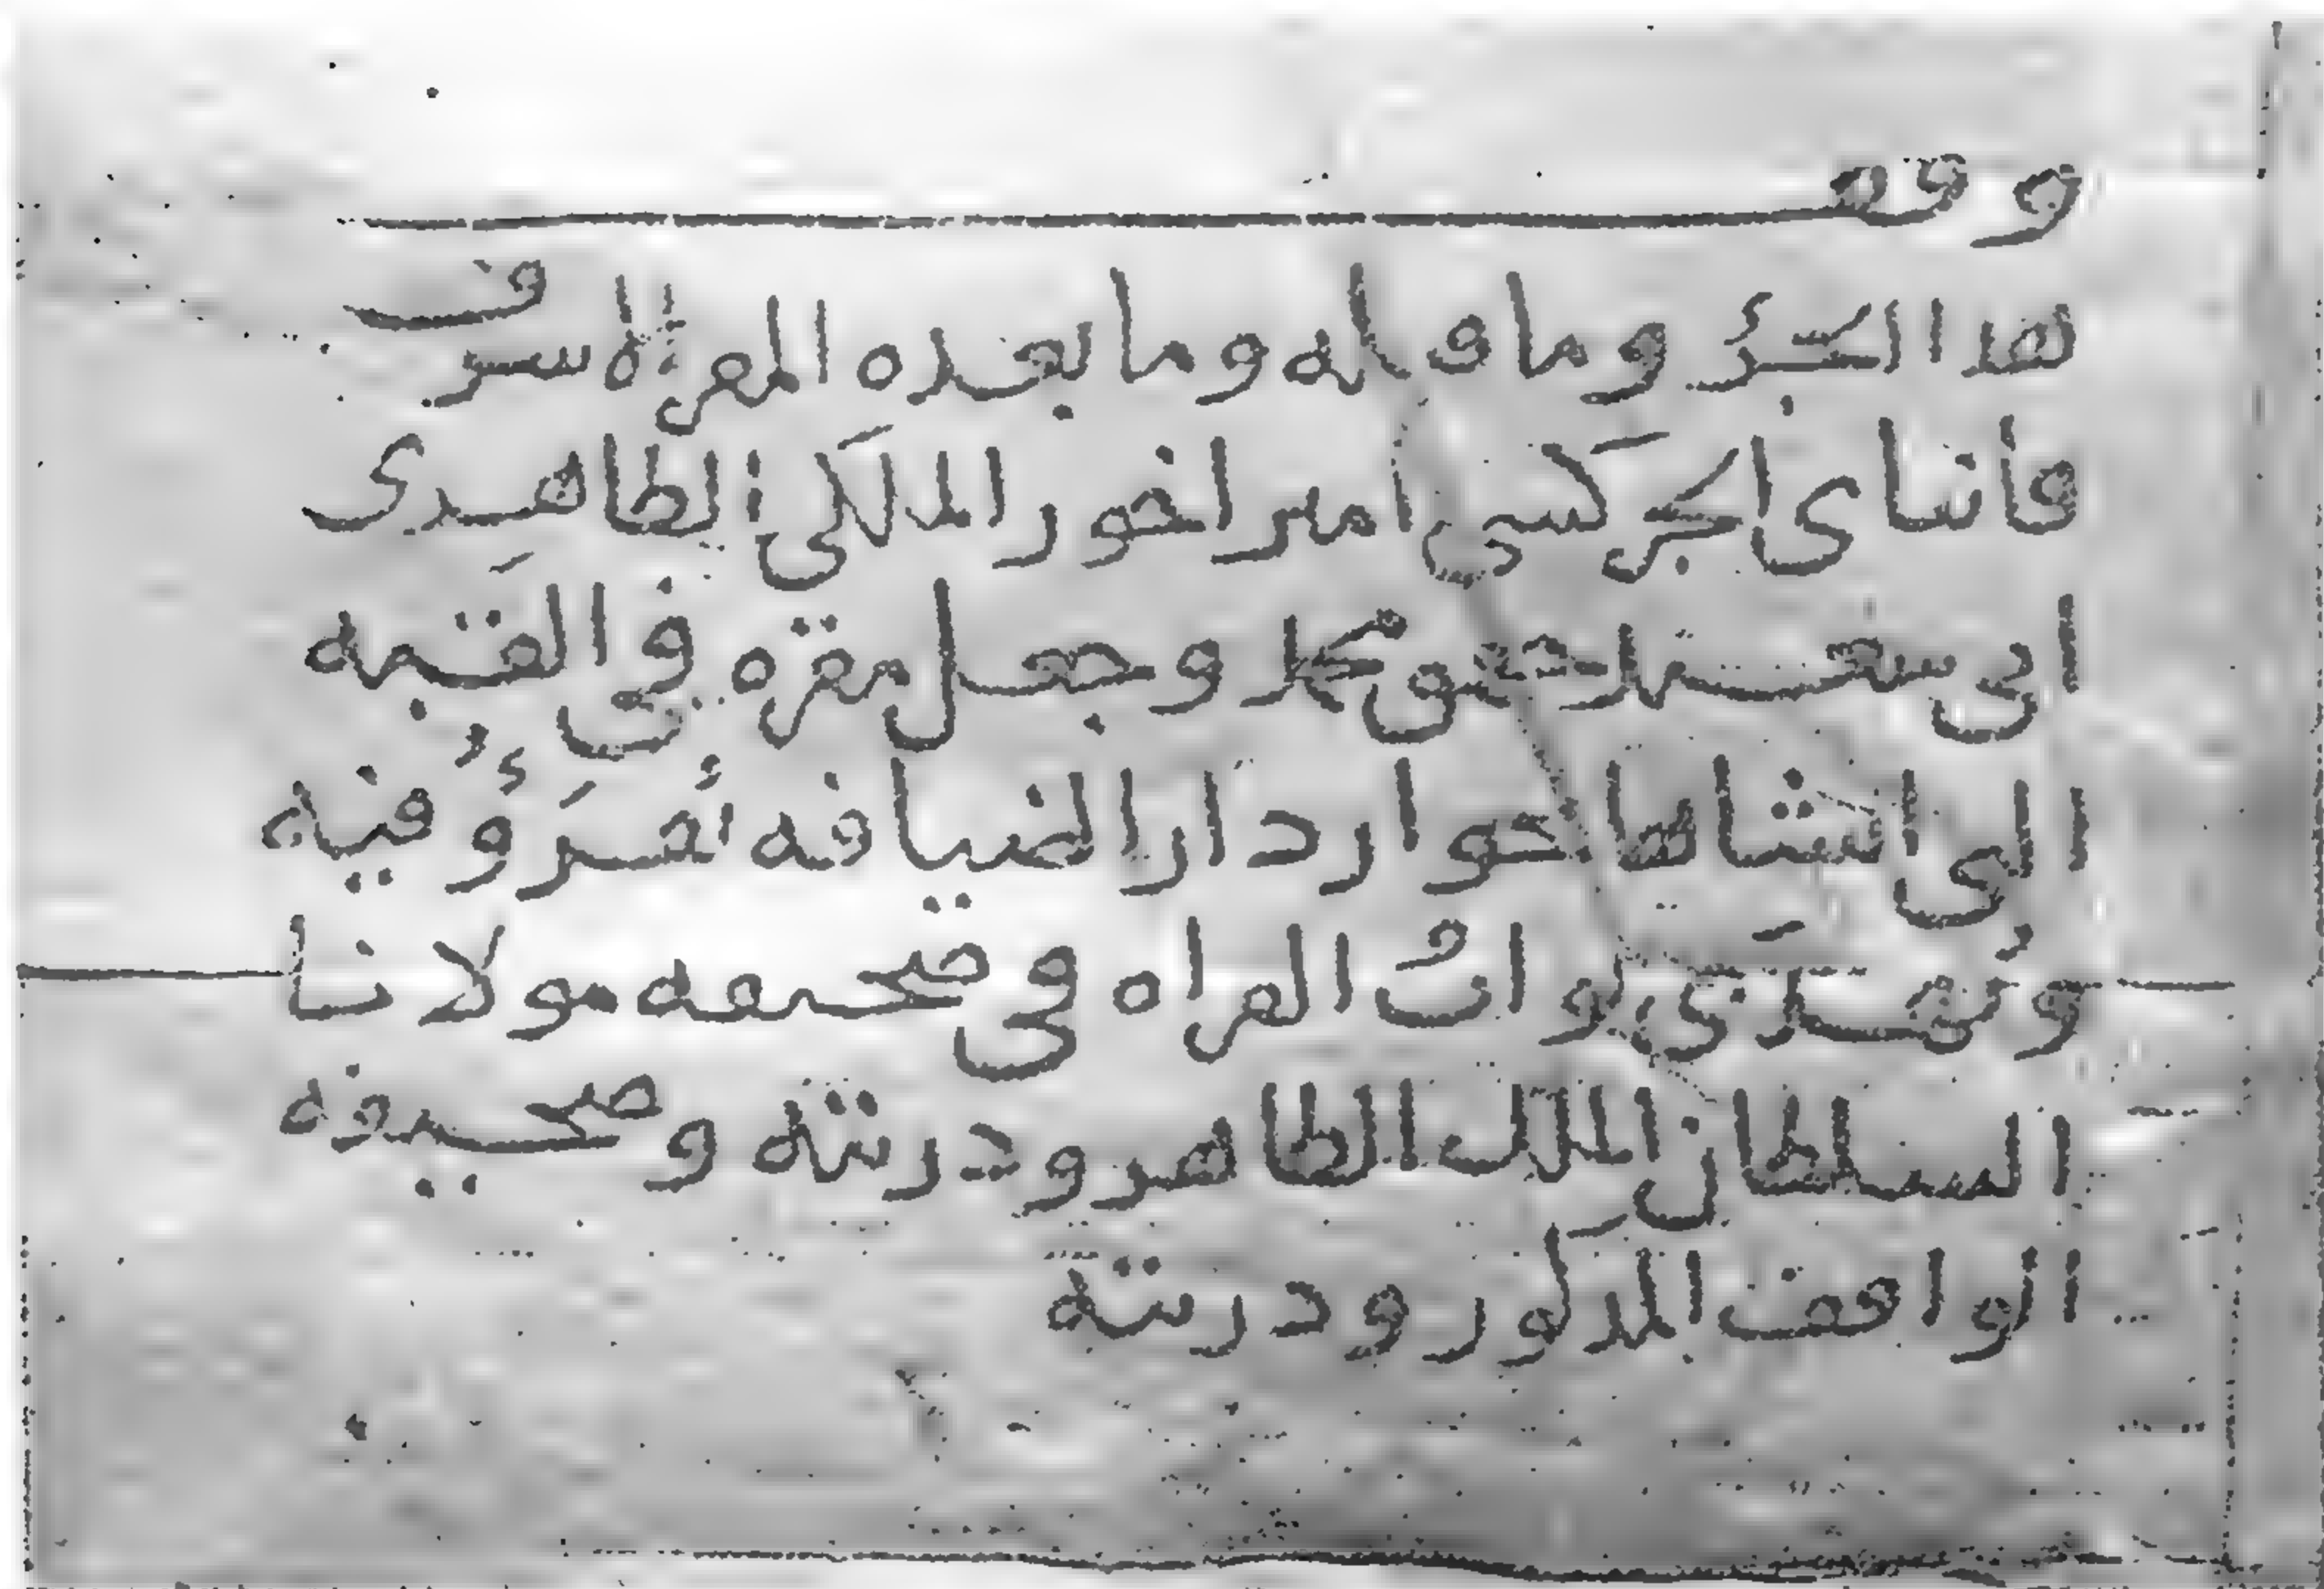 وقف
هذا الجزؤ وما قبله وما بعده المقر الاشرف
قانباى الجركسى امير اخور الملكى الظاهرى
ابى سعيد جقمق محمد وجعل مقره فى القبه
التى انشاها جوار دار الضيافه يُقرَؤُ فيه
ويُهدَى ثواب القراه فى صحيفه مولانا
السلطان الملك الظاهر وذريته وصحيفه
الواقف المذكور وذريته